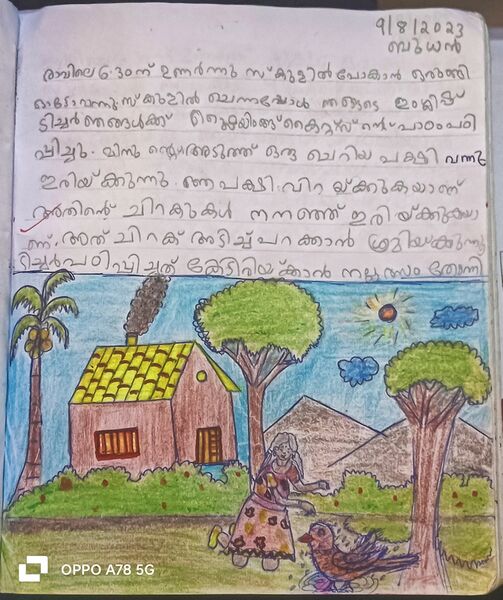 9/8/2023
ബുധൻ
രാവിലെ 6:30ന് ഉണർന്നു സ്കൂളിൽ പോകാൻ ഒരുങ്ങി
ഓട്ടോ വന്നു സ്കൂളിൽ ചെന്നപ്പോൾ ഞങ്ങടെ ഇംഗ്ലീഷ്
ടീച്ചർ ഞങ്ങൾക്ക് പാഠം പഠി
പ്പിച്ചു. അടുത്ത് ഒരു ചെറിയ പക്ഷി വന്നു
ഇരിയ്ക്കുന്നു. ആ പക്ഷി വിറയ്ക്കുകയാണ്
അതിൻ്റെ ചിറകുകൾ നനഞ്ഞ് ഇരിയ്ക്കുകയാ
ണ്. അത് ചിറക് അടിച്ച് പറക്കാൻ ശ്രമിയ്ക്കുന്നു
ടീച്ചർ പഠിപ്പിച്ചത് കേട്ടിരിയ്ക്കാൻ നല്ല രസം തോന്നി
OPPO A78 5G